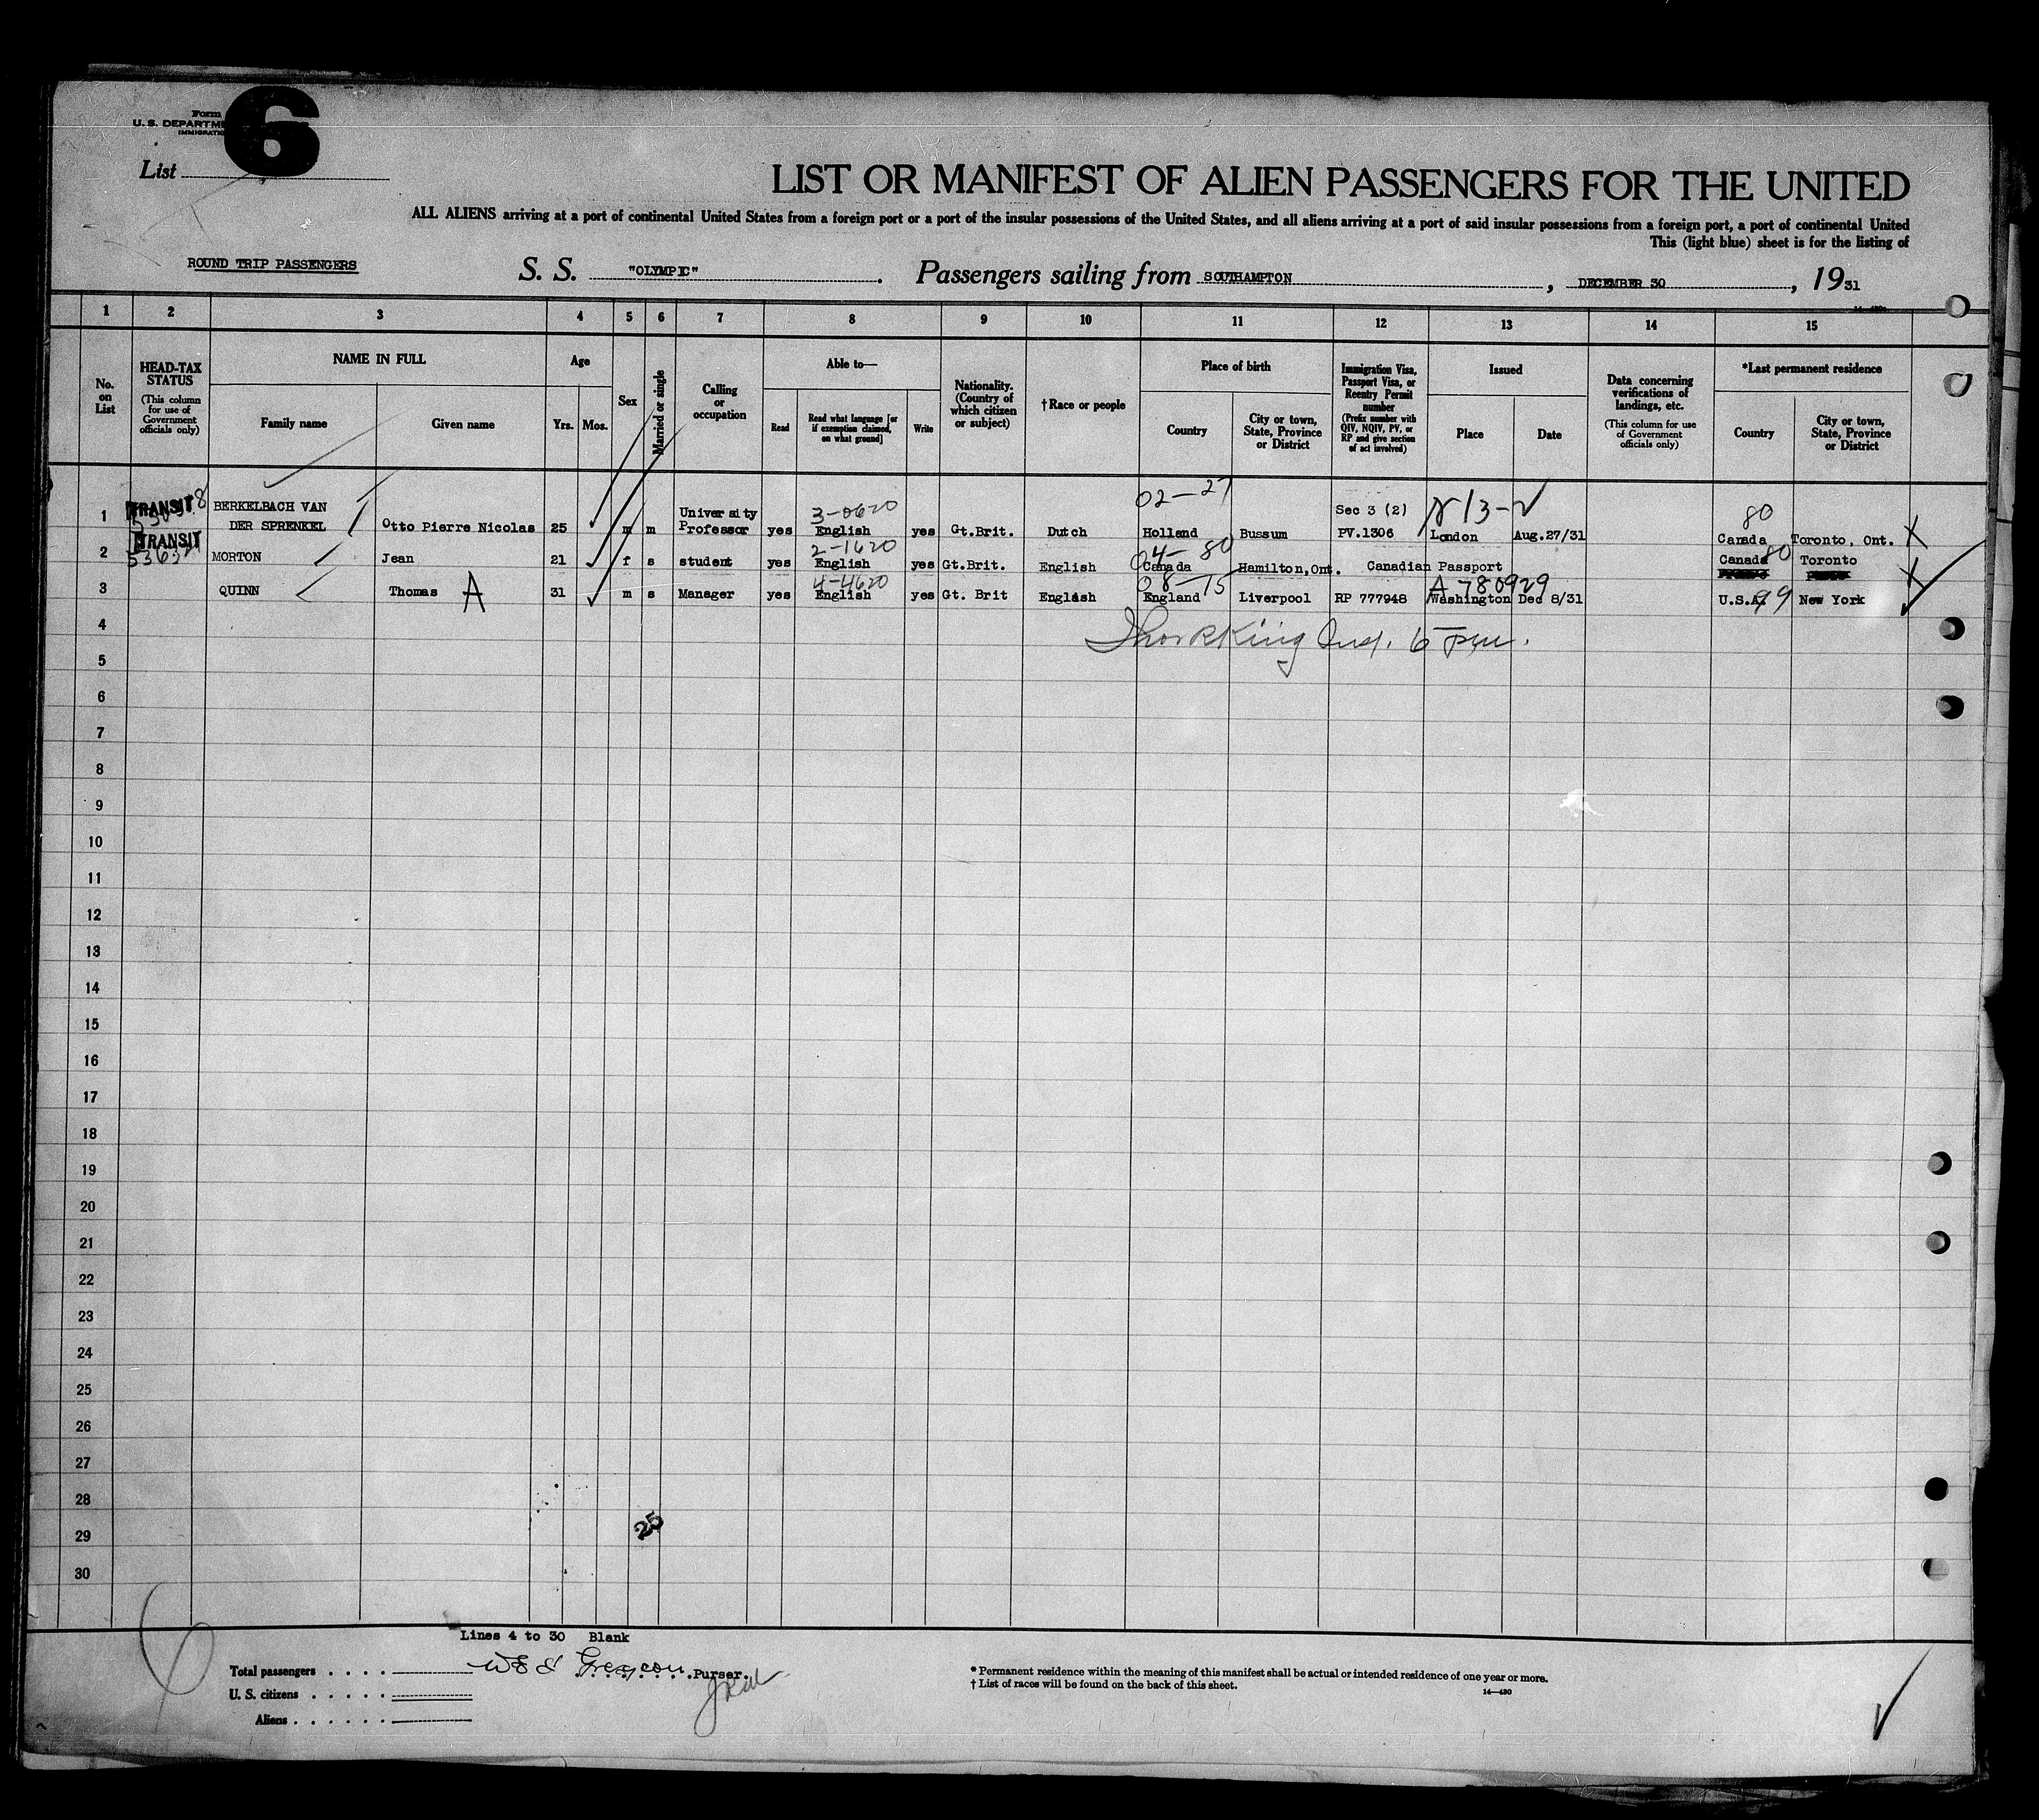 Form
U. S. DEPARTM
IMMIGRATIO
6
List
LIST OR MANIFEST OF ALIEN PASSENGERS FOR THE UNITED
ALL ALIENS arriving at a port of continental United States from a foreign port or a port of the insular possessions of the United States, and all aliens arriving at a port of said insular possessions from a foreign port, a port of continental United
This (light blue) sheet is for the listing of
ROUND TRIP PASSENGERS S. S. "OLYMPIC". Passengers sailing from SOUTHAMPTON, DECEMBER 30, 1931
1 2 3 4 5 6 7 8 9 10 11 12 13 14 15
No. on List
HEAD-TAX STATUS
(This column for use of Government officials only)
NAME IN FULL
Family name
Given name
Age
Yrs. Mos.
Sex
Married or single
Calling or occupation
Able to—
Read
Read what language [or if exemption claimed, on what ground]
Write
Nationality. (Country of which citizen or subject)
†Race or people
Place of birth
Country
City or town, State, Province or District
Immigration Visa, Passport Visa, or Reentry Permit number
(Prefix number with QIV, NQIV, PV, or RP and give section of act involved)
Issued
Place
Date
Data concerning verifications of landings, etc.
(This column for use of Government officials only)
*Last permanent residence
Country
City or town, State, Province or District
02—27
TRANSIT BERKELBACH VAN University 3-0620 Sec 3 (2) 80
1 DER SPRENKEL Otto Pierre Nicolas 25 m m Professor yes English yes Gt.Brit. Dutch Holland Bussum PV.1306 London Aug.27/31 Canada Toronto, Ont. X
TRANSIT 2-1620 04-80 80
2 MORTON Jean 21 f s student yes English yes Gt.Brit. English Canada Hamilton,Ont. Canadian Passport Canada Toronto X
4-4620 08-75 A-780929
3 QUINN Thomas A 31 m s Manager yes English yes Gt. Brit English England Liverpool RP 777948 Washington Dec 8/31 U.S.A. 99 New York
4
5
6
7
8
9
10
11
12
13
14
15
16
17
18
19
20
21
22
23
24
25
26
27
28
29
30
25
Lines 4 to 30 Blank
Total passengers . . . .
Purser.
U. S. citizens . . . . .
Aliens . . . . . .
* Permanent residence within the meaning of this manifest shall be actual or intended residence of one year or more.
† List of races will be found on the back of this sheet.
14—430